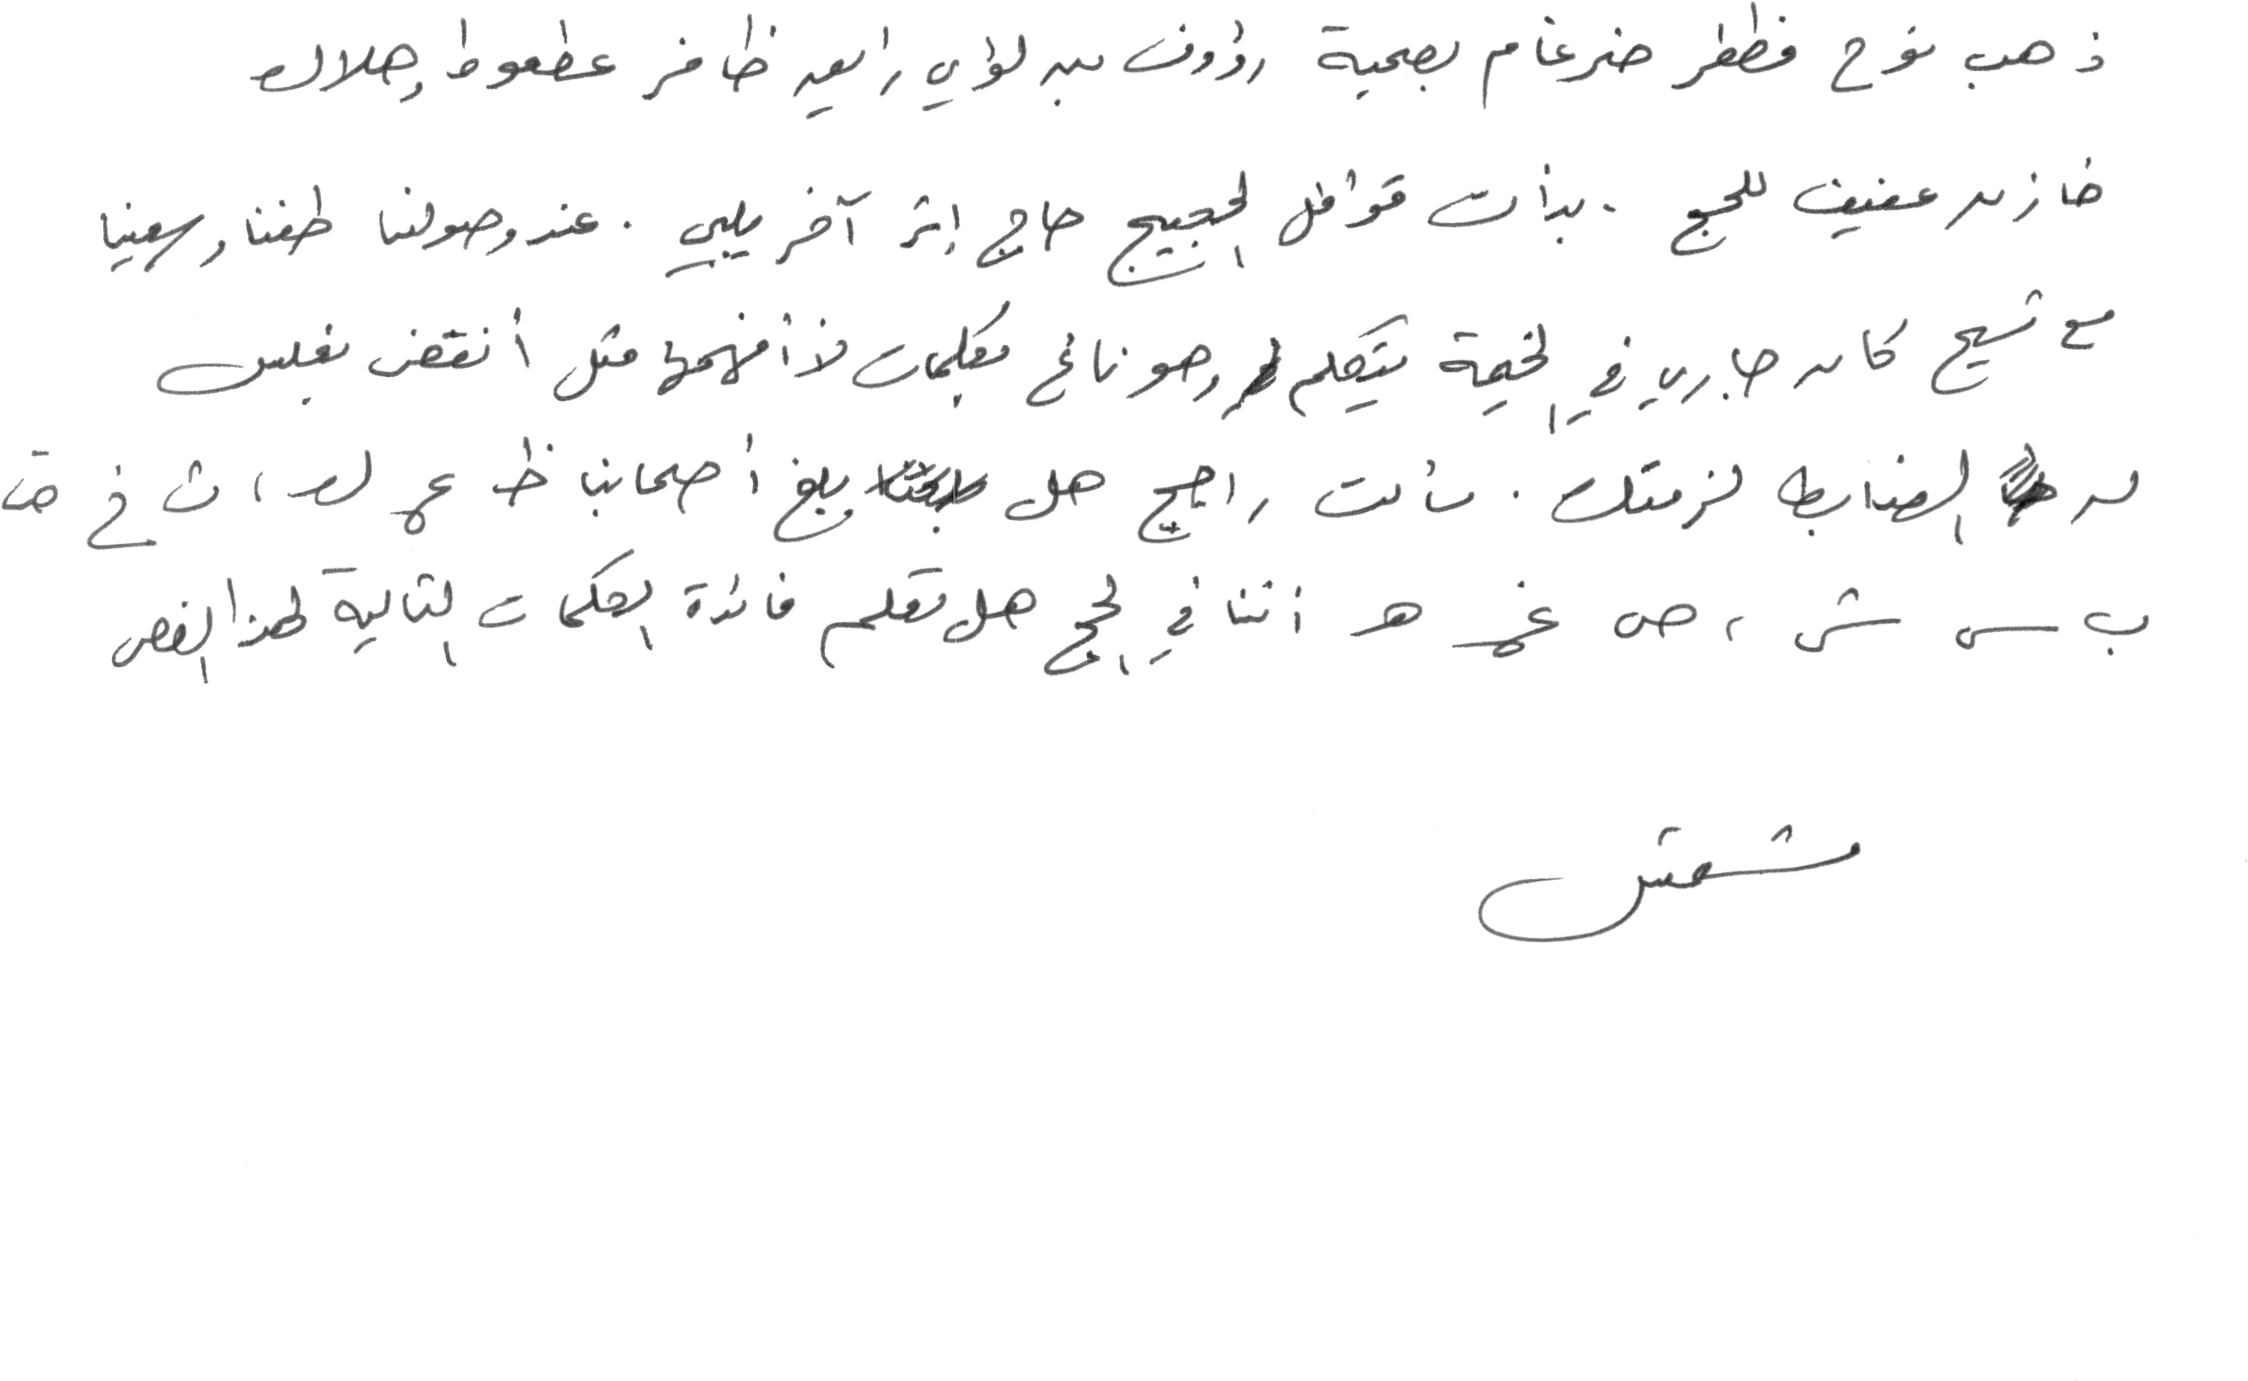 ذهب نوح مظفر ضرغام بصحبة رؤوف بن لؤي راغب ظافر عطعوط وهلال
خازن عفيف للحج . بدأت قوافل الحجيج حاج إثر آخر يلبي . عند وصولنا طفنا وسعينا
مع شيخ كان جاري في الخيمة يتكلم وهو نائم بكلمات لا أفهمها مثل أنقض بغلس
لد الضابط لزمتك . سألت راجح هل بلغ أصحابنا ظ عم لد ، ث خ ض
ب س ش ، ص غم هـ اننا في الحج هل تعلم فائدة الكلمات التالية لهذا الفص
مشمش